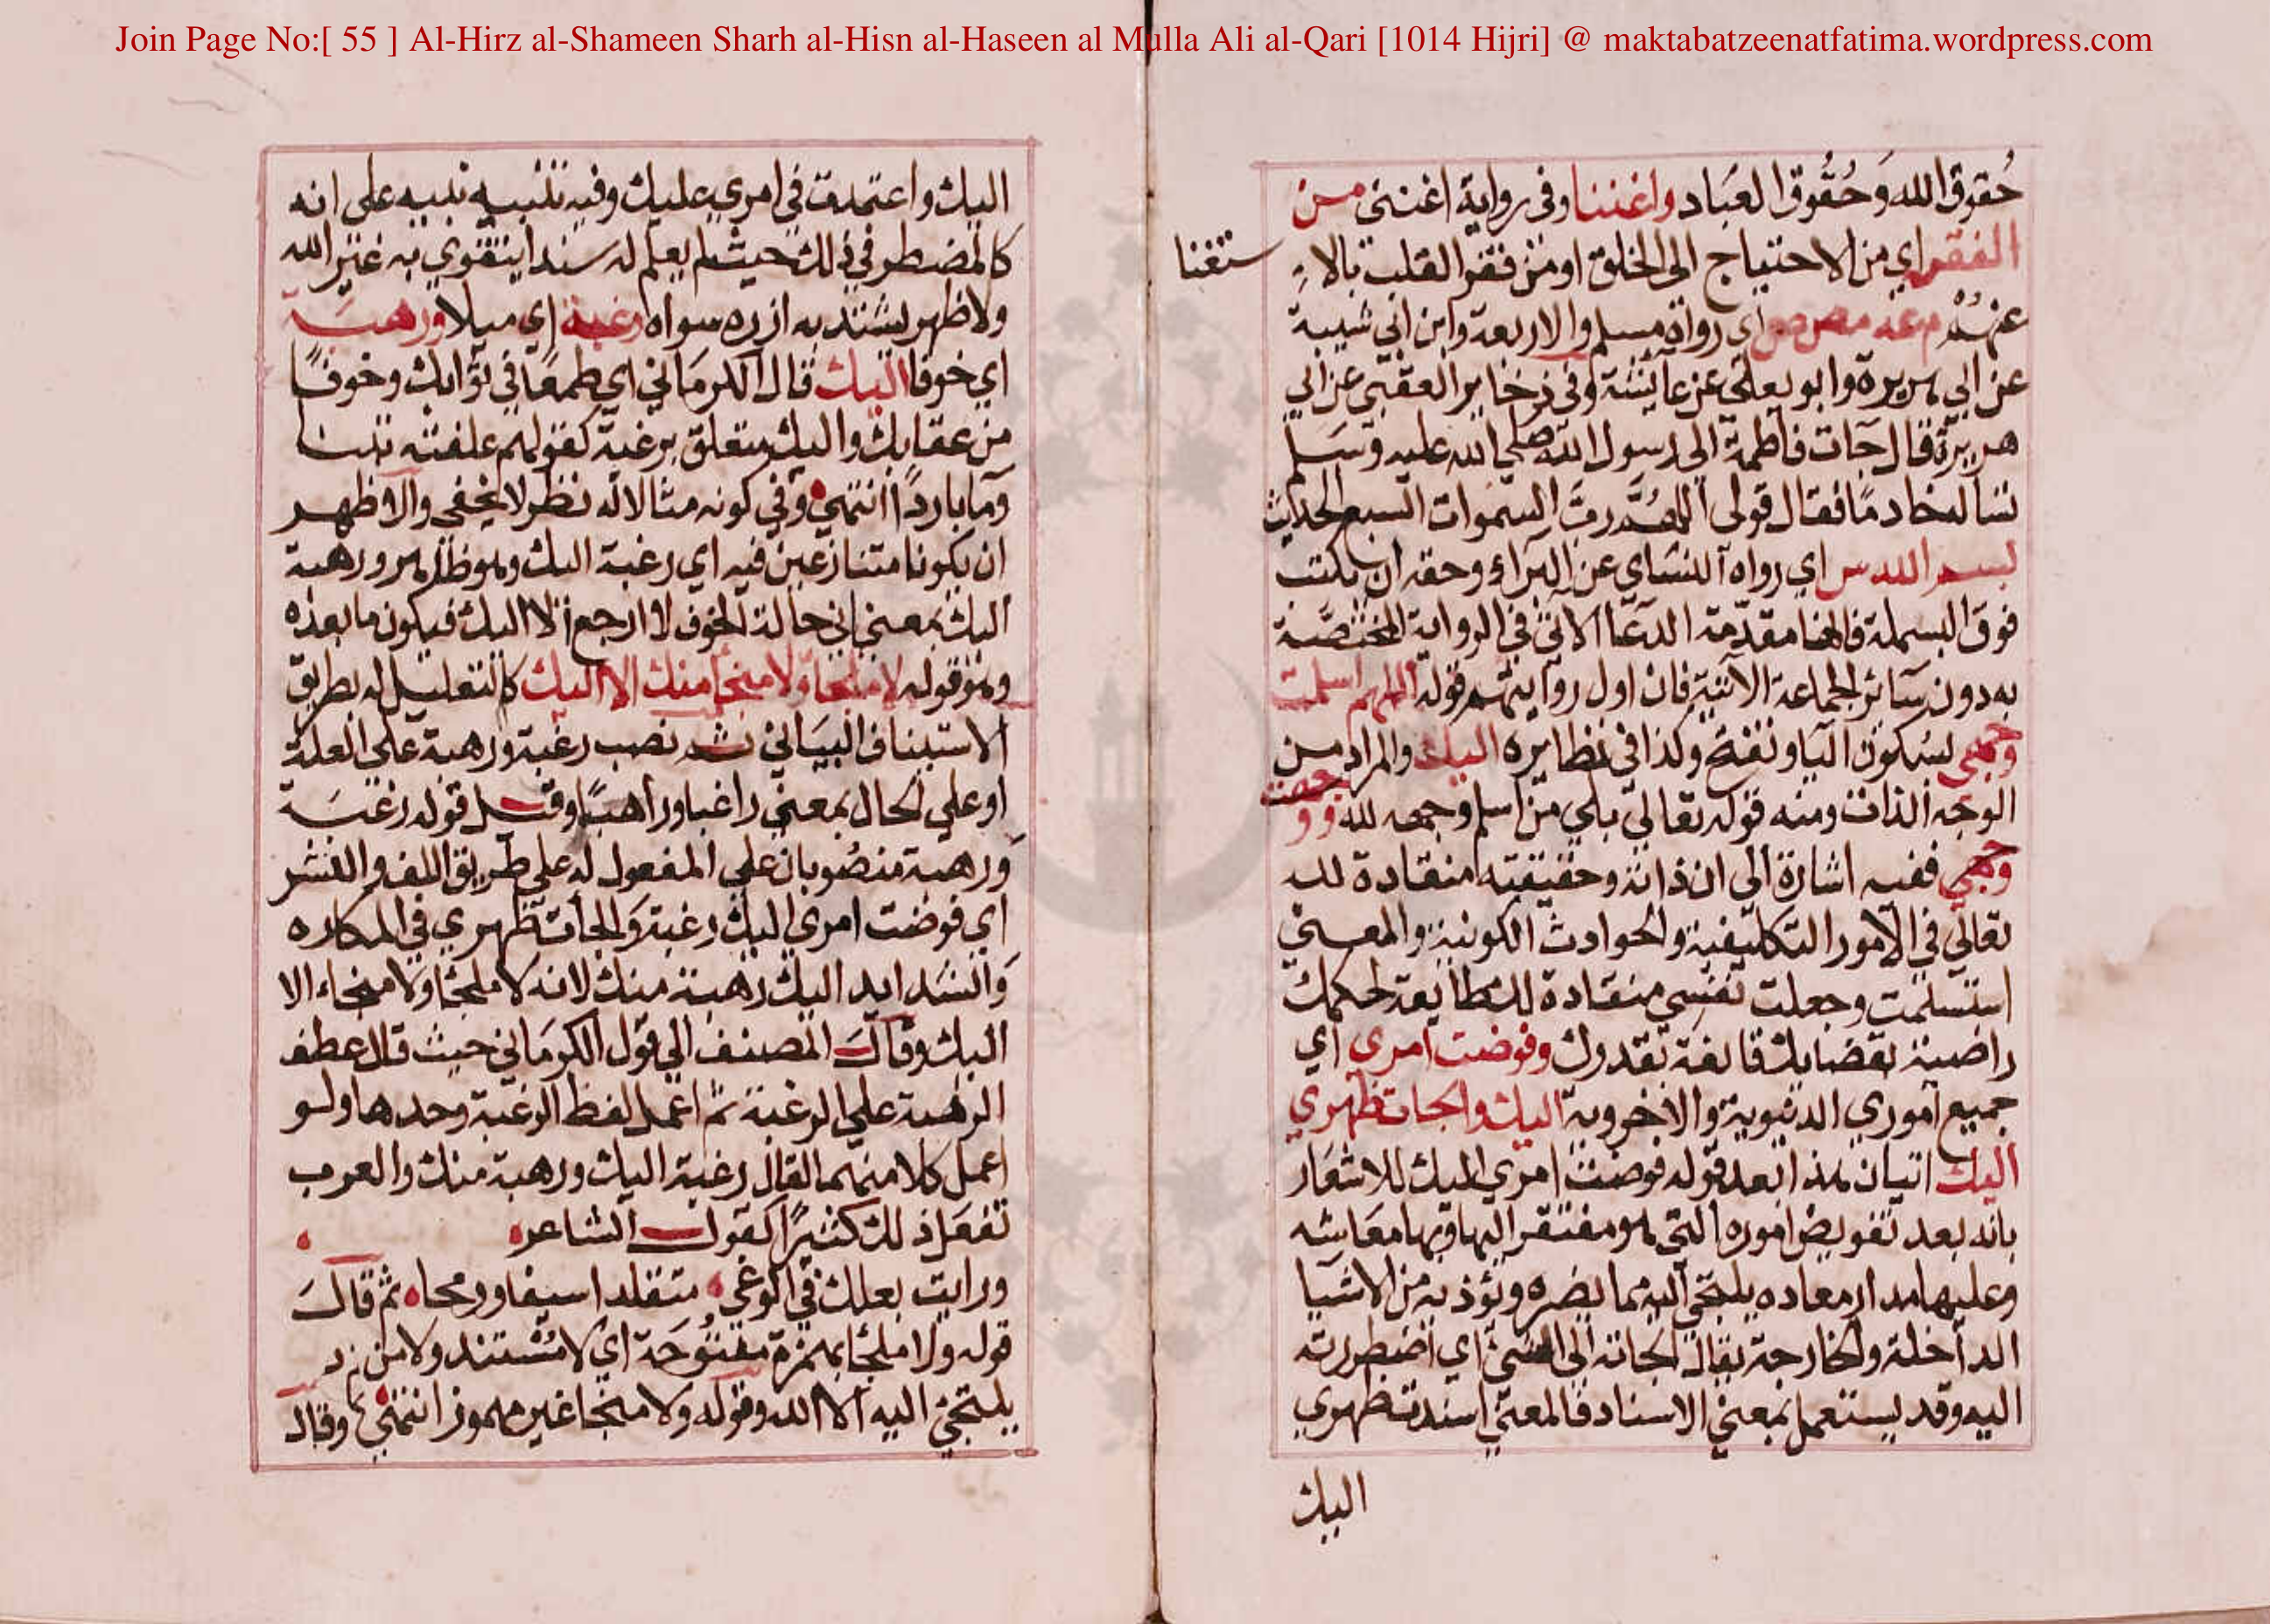 Join Page No:[ 55 ] Al-Hirz al-Shameen Sharh al-Hisn al-Haseen al Mulla Ali al-Qari [1014 Hijri] @ maktabatzeenatfatima.wordpress.com
حُقوق الله وَحُقُوق العبَاد واغننا وفى رواية اغننى من
الفقر اي من الاحتياج الى الخلق او من فقر القلب بالا
ستغنا
عنهم م عه مص ص اي رواه مسلم والاربعة وابن ابي شيبة
عن ابي هريرة وابو يعلى عن عايشة وفى ذخاير العقبى عن ابي
هريرة قال جات فاطمة الى رسول الله صلى الله عليه وسَلم
تسأله خادمًا فقال قولى اللهم رب السموات السبع الحديث
بسم الله س اي رواه النساي عن البرآء وحقه ان يكتب
فوق البسملة فانها مقدّمة الدعا الاتى فى الرواية المختصّة
به دون سآئر الجماعة الآتية فان اول روايتهم قوله اللهم اسلمت
وجهى بسكون اليا وتفتح وكذا فى نظايره اليك والمراد من
الوجه الذات ومنه قوله تعالى بلى من اسلم وجهه لله و وجهت
وجهي ففيه اشارة الى ان ذاته وحقيقته منقادة لله
تعالى في الامور التكليفية والحوادث الكونية والمعنى
استسلمت وجعلت نفسي منقادة لك طايعة لحكمك
راضية بقضايك قانعة بقدرك وفوضت امري اي
جميع اموري الدنيوية والاخروية اليك والجات ظهري
اليك اتيان هذا بعد قوله فوضت امري اليك للاشعار
بانه بعد تفويض اموره التى هو مفتقر اليها وبها معاشه
وعليها مدار معاده يلتجي اليه مما يضره ويؤذيه من الاشيا
الداخلة والخارجة يقال الجاته الى الشيئ اي اضطررته
اليه وقد يستعمل بمعنى الاسناد فالمعنى اسندت ظهري
اليك
اليك واعتمدت في امري عليك وفيه تنبيه نبيه على انه
كالمضطر في ذلك حيث لم يعلم له سندا يتقوي به غير الله
ولا ظهر يشتد به ازره سواه رغبة اي ميلا ورهبَة
اي خوفا اليك قال الكرمَاني اي طمعًا في ثوابك وخوفًا
من عقابك واليك متعلق برغبة كقولهم علفته تبنا
وما باردًا انتهى وفي كونه مثالا له نظر لا يخفى والاظهر
ان يكونا متنازعين فيه اي رغبة اليك وهو ظاهر ورهبة
اليك بمعنى اني حالة الخوف لا ارجع الا اليك فيكون ما بعده
وهو قوله لا ملجأ ولا منجا منك الا اليك كالتعليل له بطريق
الاستيناف البيَاني ثم نصب رغبة ورهبة على العلة
او على الحال بمعنى راغبا وراهبًا وقيل قوله رغبَة
ورهبة منصُوبان على المفعول له على طريق اللف والنشر
اي فوضت امري اليك رغبة والجات ظهري في المكاره
والشدايد اليك رهبة منك لانه لا ملجا ولا منجاء الا
اليك وقال المصنف الى قول الكرمَاني حيث قال عطف
الرهبة على الرغبة ثم اعمل لفظ الرغبة وحدها ولو
اعمل كلا منهما لقال رغبة اليك ورهبة منك والعرب
تفعل ذلك كثيرًا كقول الشاعر
ورايت بعلك في الوغى متقلدا سيفا ورمحا ثم قال
قوله ولا ملجا بهمزة مفتوحَة اي لا مُستند ولا من
يلتجئ اليه الا الله وقوله ولا منجا غير مهموز انتهى وقال